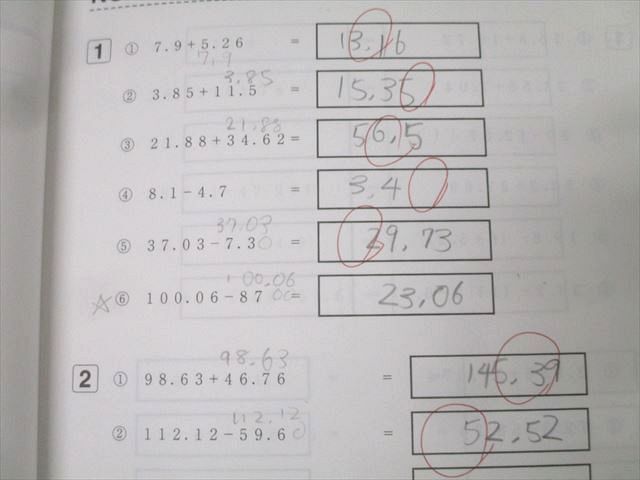 1 ① 7.9+5.26 = 13.16
7.9
3.85
② 3.85+11.5 = 15.35
21.88
③ 21.88+34.62= 56.5
④ 8.1-4.7 = 3.4
37.03
⑤ 37.03-7.30 = 29.73
100.06
☆⑥ 100.06-87 00= 23.06
98.63
2 ① 98.63+46.76 = 145.39
112.12
② 112.12-59.60 = 52.52